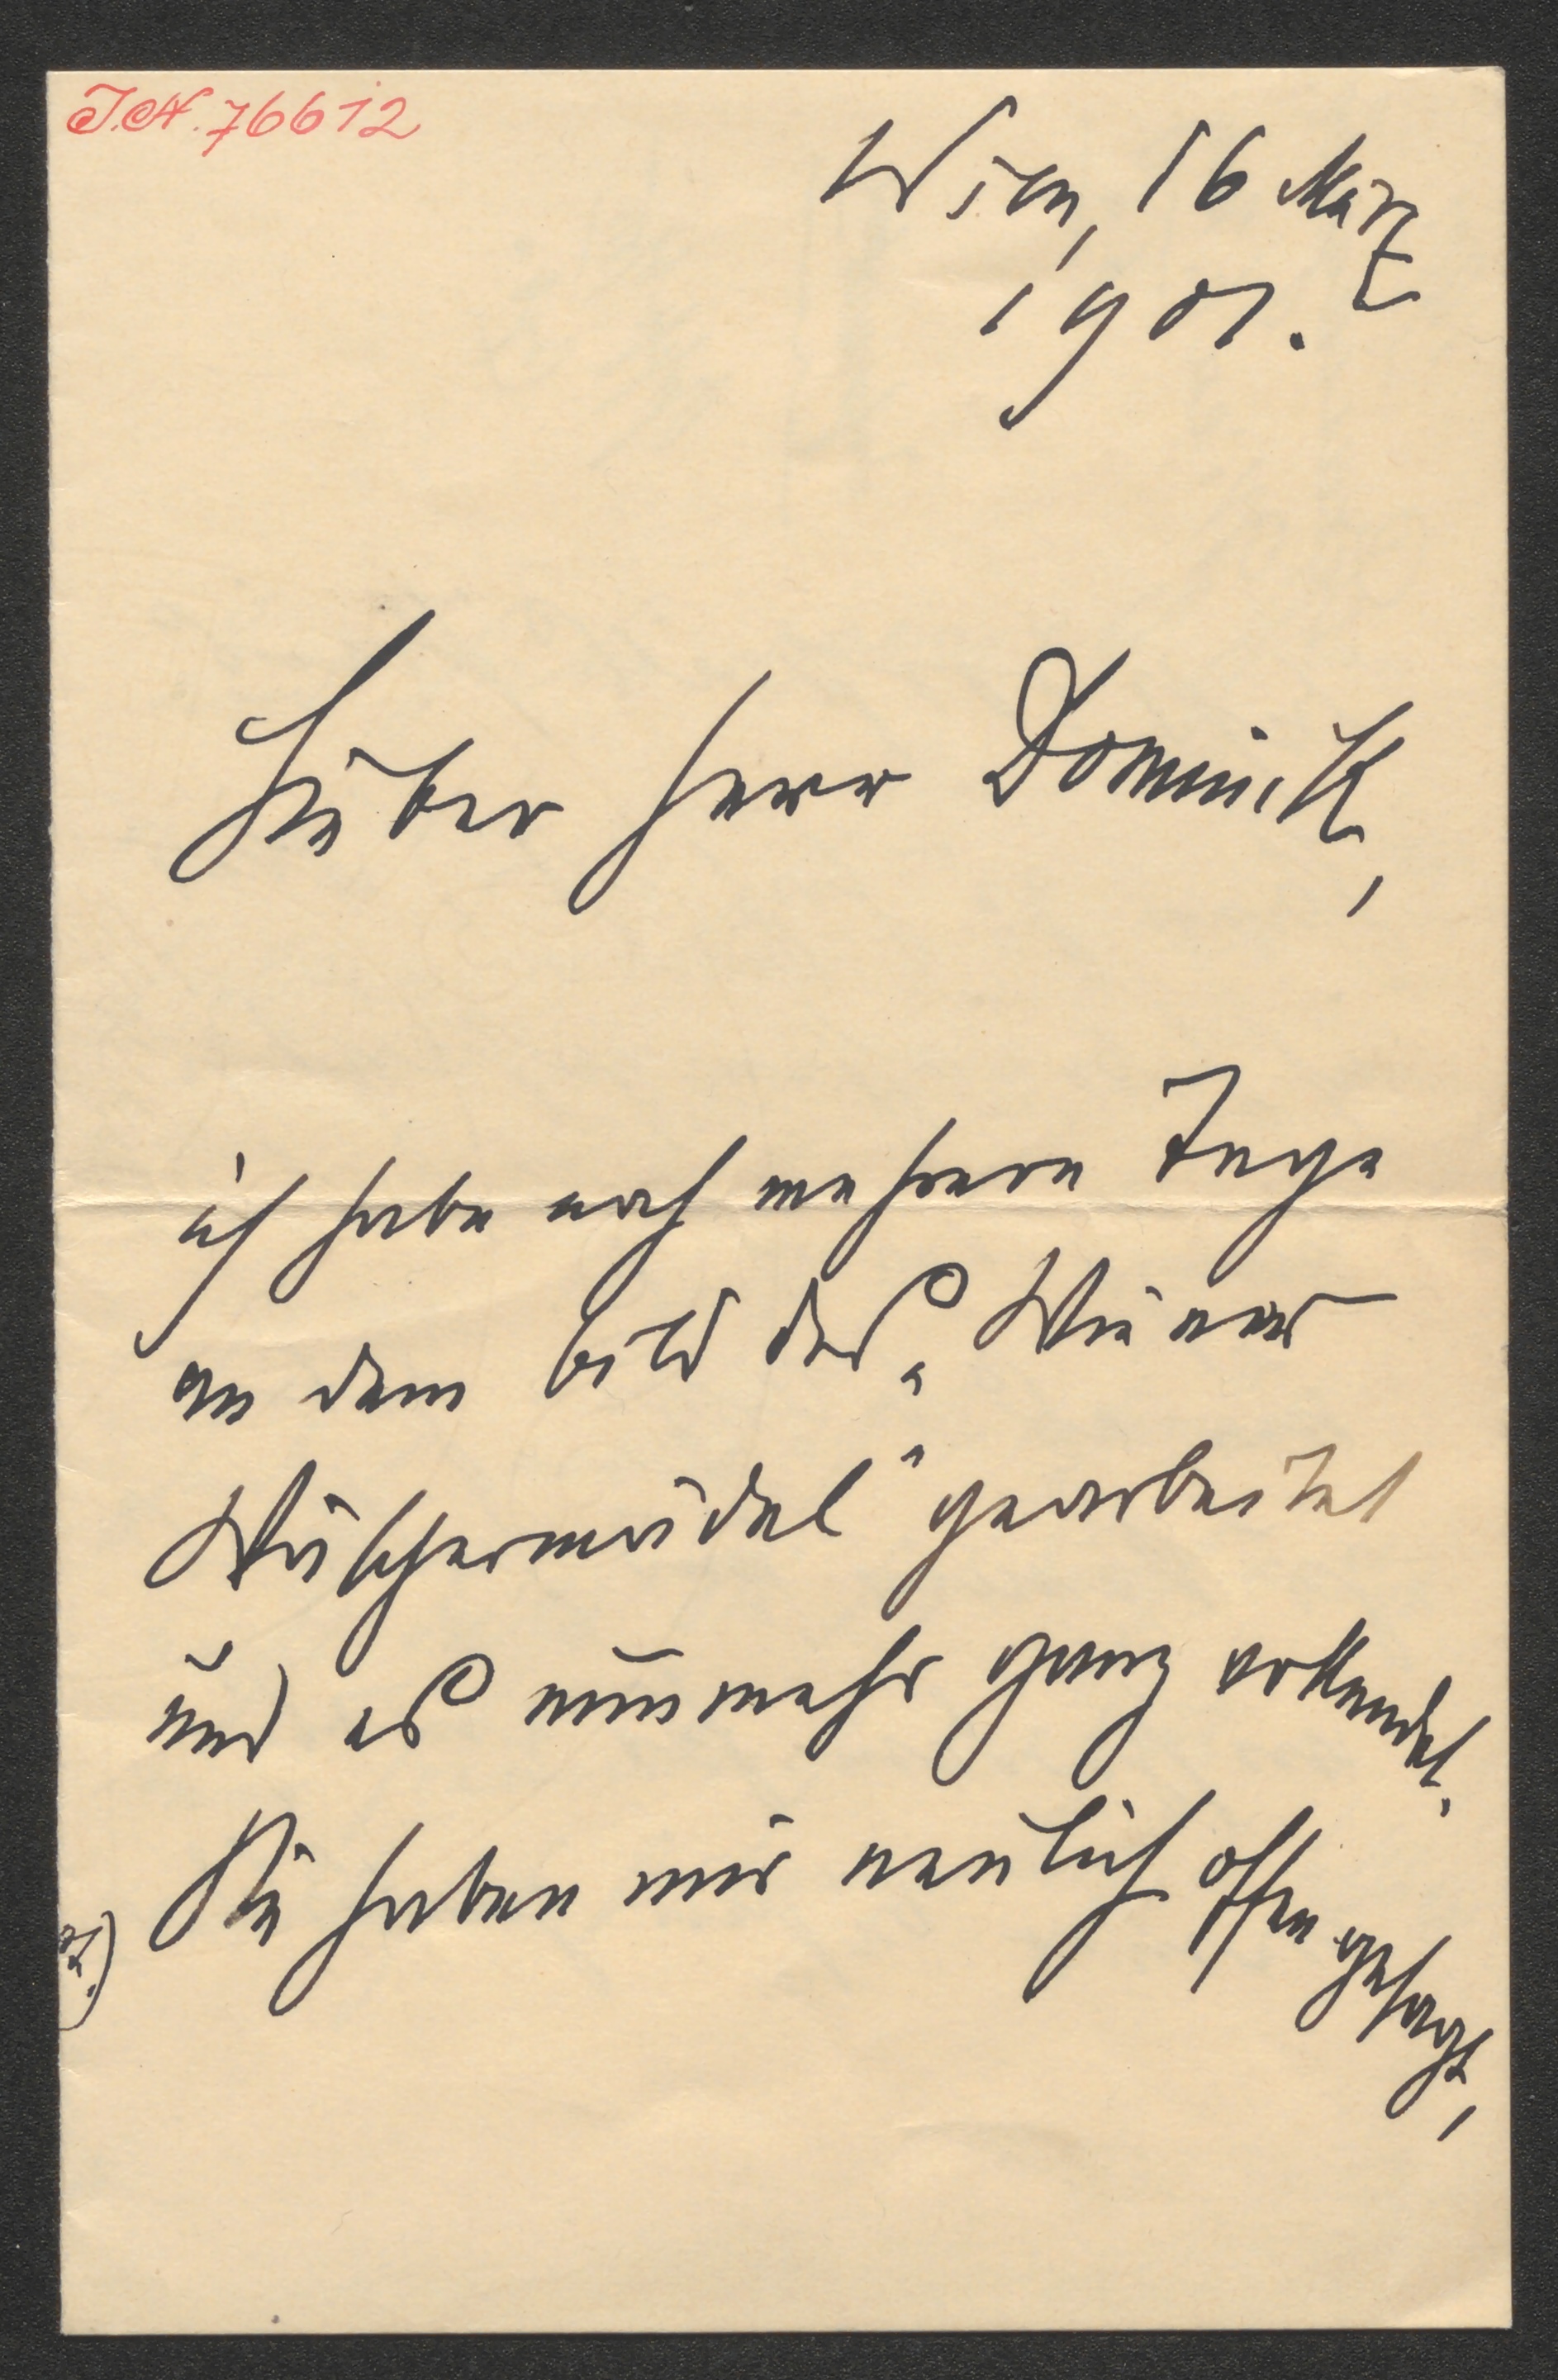 J.N. 76612
Wien, 16 März
1901.
Lieber Herr Dominik,
ich habe noch mehrere Tage
an dem Bild des „Wiener
Wäschermädel" gearbeitet
und es nunmehr ganz vollendet.
Sie haben mir neulich offen gesagt,